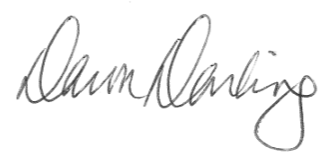 Dawn Darling